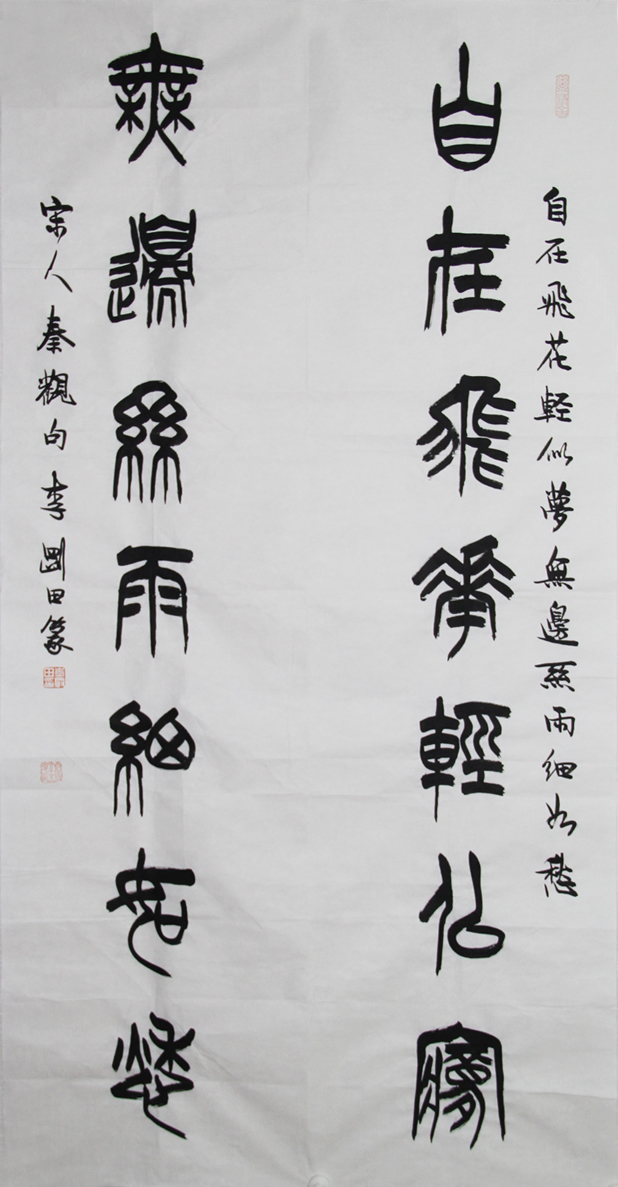 自在飛花軽似夢無邊絲雨細如愁
自在飛華輕似夢
無邊絲雨細如愁
宋人秦觀句李剛田篆